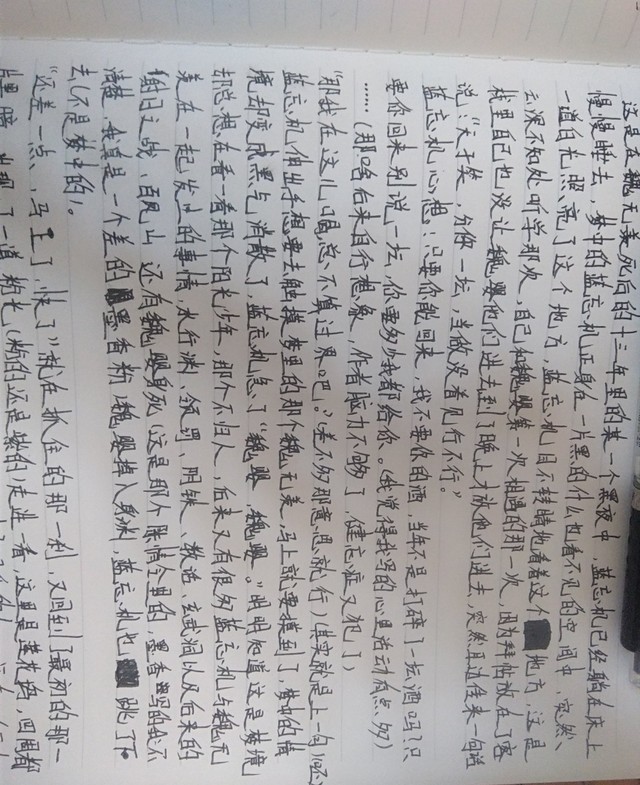 这是走魏无羡死后的十三年里的某一个黑夜中，蓝忘机已经躺在床上
慢慢睡去，梦中的蓝忘机正身在一片黑的什么也看不见的空间中，突然、
一道白光照亮了这个地方，蓝忘机目不转睛地看着这个地方，这是
云深不知处听学那次，自己和魏婴第一次相遇的那一次，因为拜帖放在了客
栈里自己也没让魏婴他们进去到了晚上才放他们进去，突然耳边传来一句话
说：“天子笑，分你一坛，当做没看见行不行。”
蓝忘机心想：只要你能回来，我不要你的酒，当年不是打碎了一坛酒吗？只
要你回来别说一坛，你要多少我都给你。（我觉得我写的心里活动有点多）
……（那啥后来自行想象，作者脑力不够了，健忘症又犯了）
“那我在这儿喝，总不算过界吧。”（差不多那意思就行）（其实就是上一句）
蓝忘机伸出手想要去触摸梦里的那个魏无羡，马上就要摸到了，梦中的情
境却变成黑与消散了，蓝忘机急了“魏婴，魏婴。”明明知道这是梦境
却总想在看一看那个阳光少年，那个不归人，后来又有很多蓝忘机与魏无
羡在一起发生的事情，水行渊、领罚、阴铁、教话、玄武洞以及后来的
射日之战、百凤山 还有魏婴身死（这是那个陈情令里的，墨香写的我不
清楚，我真是一个差的墨香粉）魏婴掉入身渊，蓝忘机也跳了下
去（不是梦中的）。
“还差一点、马上了，快了”就在抓住的那一刹，又回到了最初的那一
黑暗 出现了一道粉光（粉的还是紫的）走进一看，这里是莲花坞，四周都